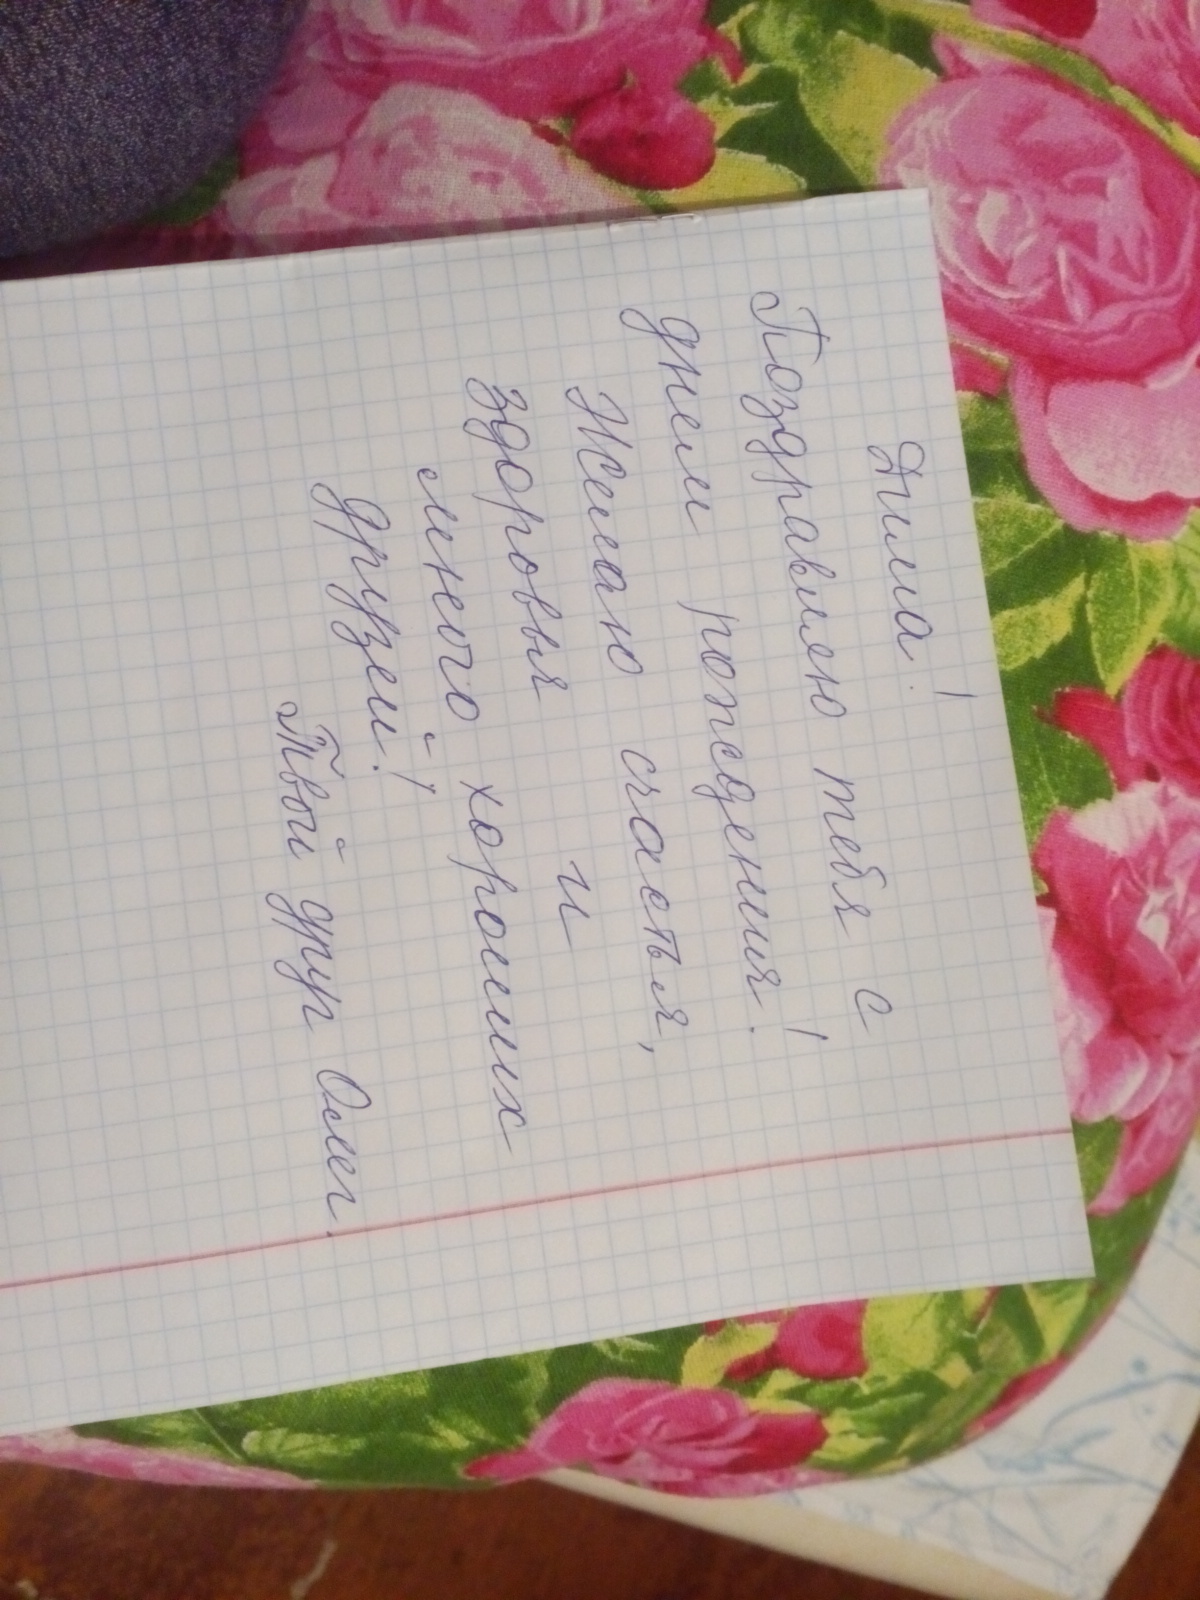 Дима!
Поздравляю тебя с
днем рождения!
Желаю счастья,
здоровья и
много хороших
друзей!
Твой друг Олег.